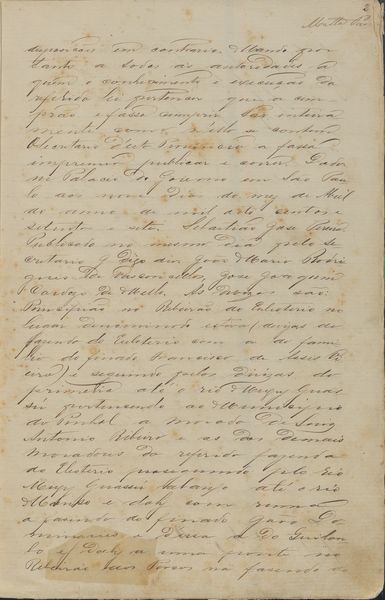 2
disposições em contrario. Mando por
tanto a todas as autoridades a
quem o conhecimento e execução da
referida lei pertencer que a cum-
prão e fação cumprir tão inteira
mente como nella se contem
O Secretario desta Provincia a faça
imprimir publicar e correr. Dada
no Palacio do Governo em São Pau
lo aos nove dias do mez de Abril
do anno de mil oito centos e
setenta e sete. Sebastião José Pereira
Publicada no mesmo dia pelo Se
cretario digo João
José Joaquim
Cardozo de Mello. As divizas são:
Principião no Ribeirão do Eleuterio no
lugar denominado (divizas da
fazenda do Eleuterio com a da fazen
do finado Francisco de Assis
) e seguindo pelas divizas da
primeira até o rio Mogy Guas
su pertencendo ao Municipio
do Pinhal a morada de
Antonio Ribeiro e as dos demais
moradores da referida fazenda
do Eleuterio procurando pelo rio
Mogy Guassu abaixo até o rio
e dahi com
a fazenda do finado
e
e dahi a uma ponte no
Ribeirão dos Porcos na fazenda do